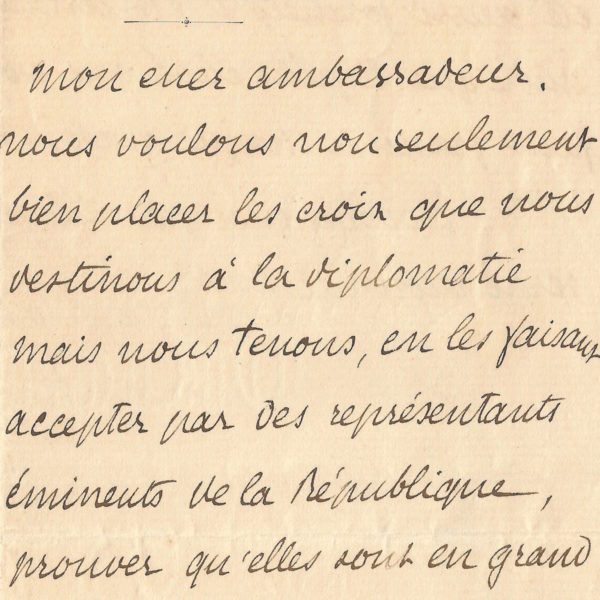 mon cher ambassadeur.
nous voulons non seulement
bien placer les croix que nous
destinons à la diplomatie
mais nous tenons, en les faisant
accepter par des représentants
éminents de la République,
prouver qu'elles sont en grand